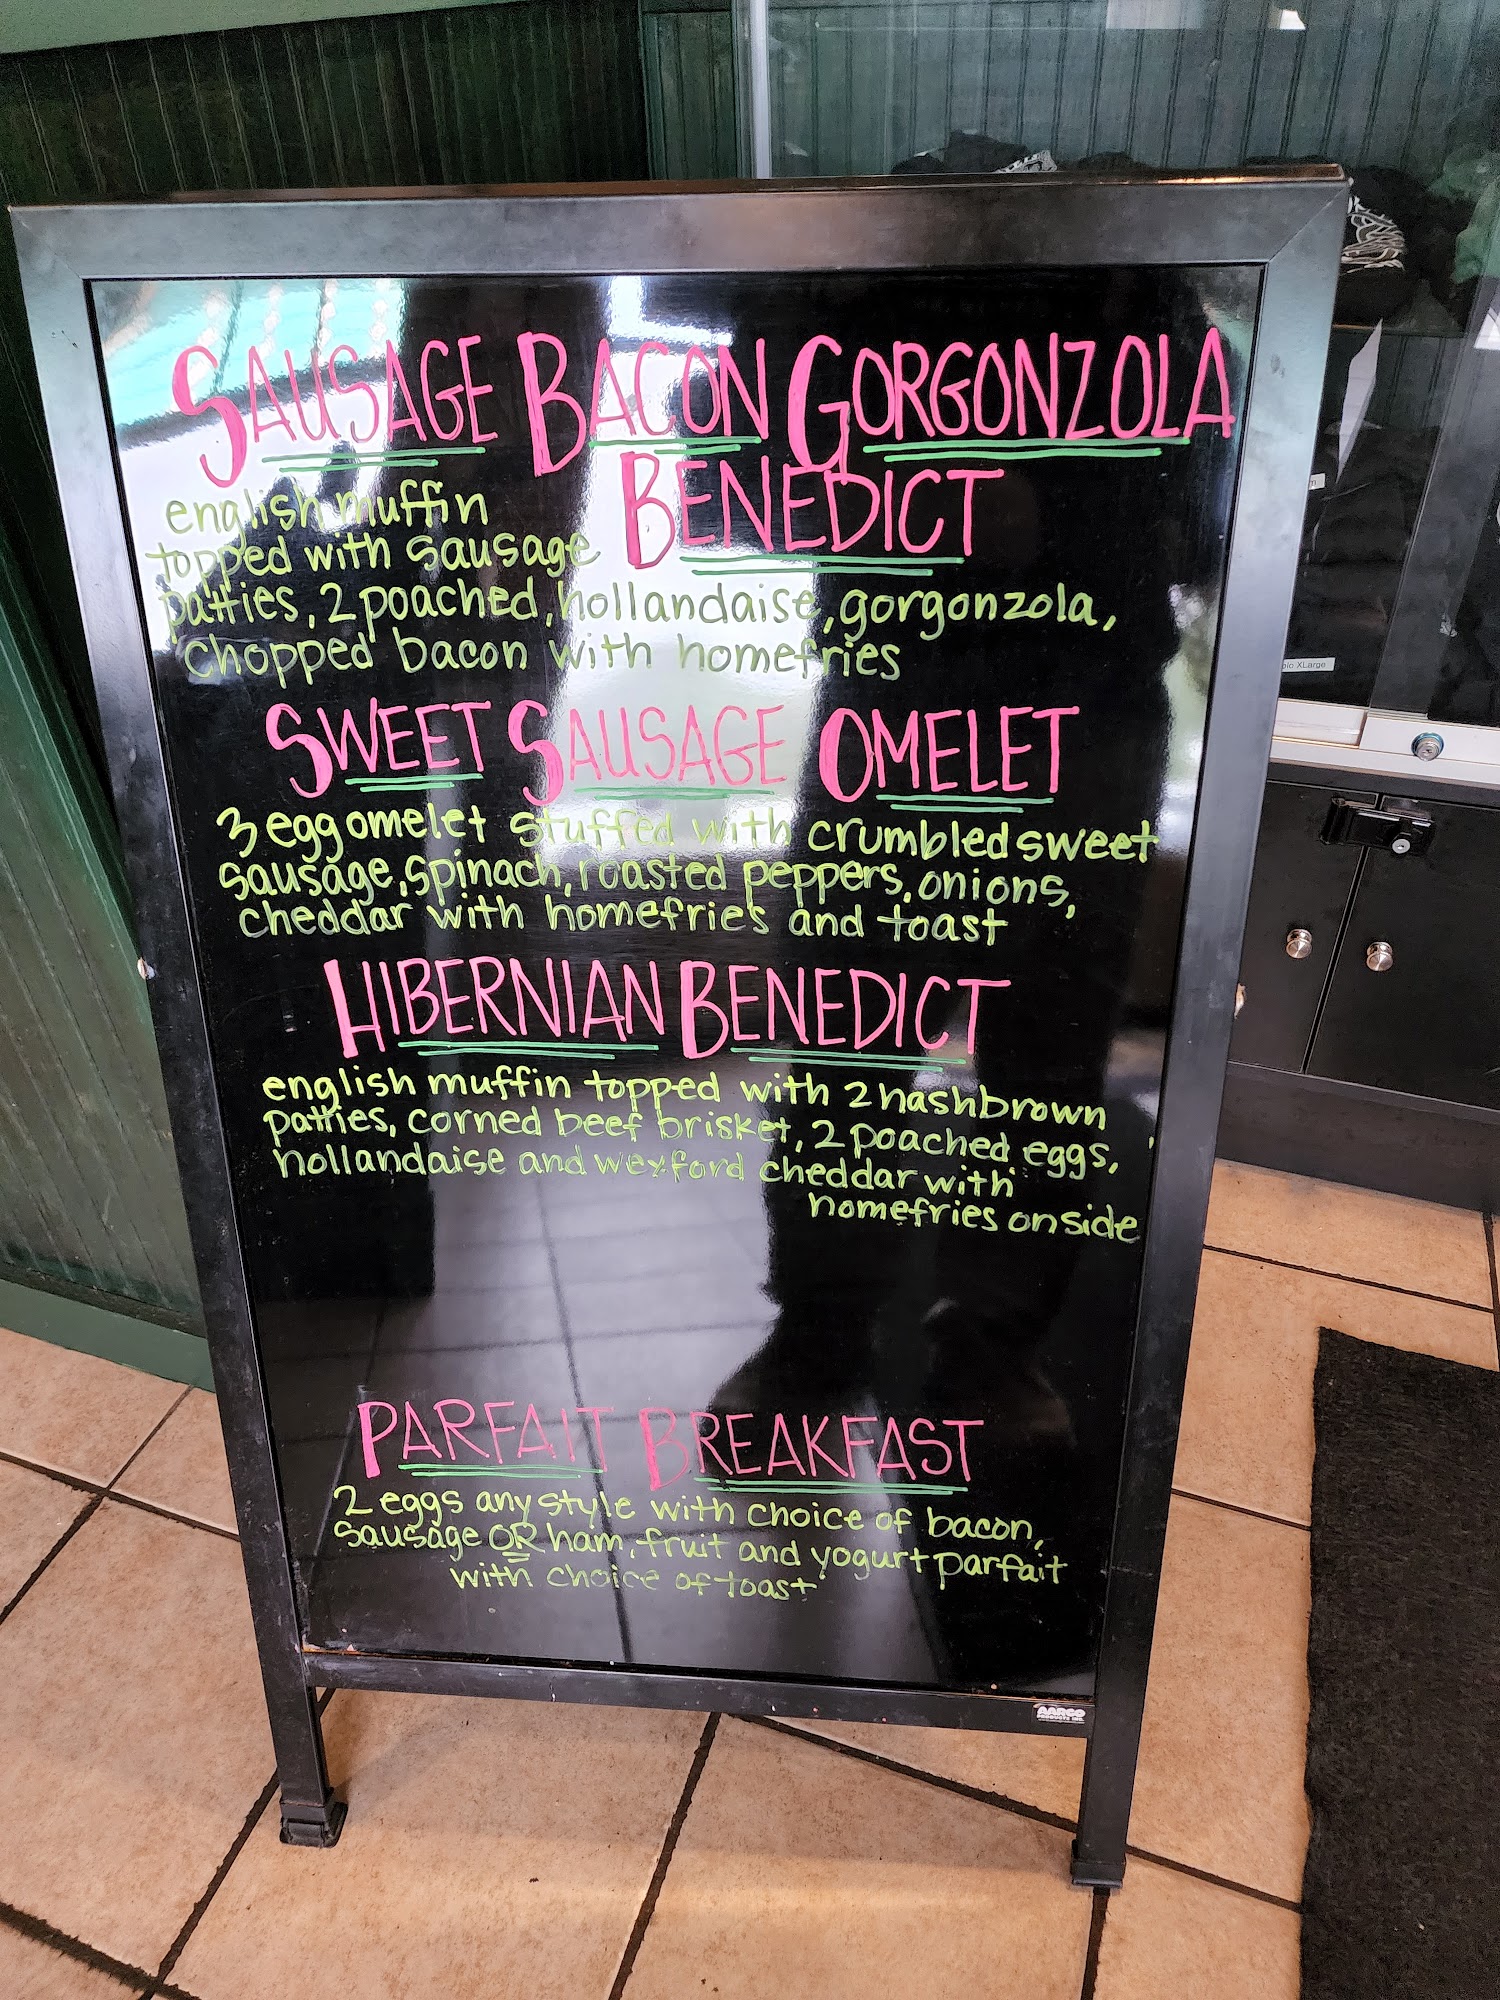 SAUSAGE BACON GORGONZOLA
BENEDICT
english muffin
topped with sausage
patties, 2 poached, hollandaise, gorgonzola,
chopped bacon with homefries
SWEET SAUSAGE OMELET
3 egg omelet stuffed with crumbled sweet
sausage, spinach, roasted peppers, onions,
cheddar with homefries and toast
HIBERNIAN BENEDICT
english muffin topped with 2 hashbrown
patties, corned beef brisket, 2 poached eggs,
hollandaise and wexford cheddar with
homefries on side
PARFAIT BREAKFAST
2 eggs any style with choice of bacon,
sausage OR ham, fruit and yogurt parfait
with choice of toast
AARCO
PRODUCTS INC.
XLarge